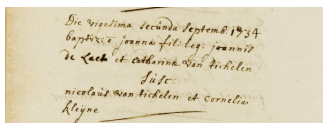 Die vigesima secunda Septemb. 1734
baptizo joanna fil: leg: joannis
de Laet et Catharina van tichelen
Susc.
nicolaus van tichelen et Cornelia
kleyne